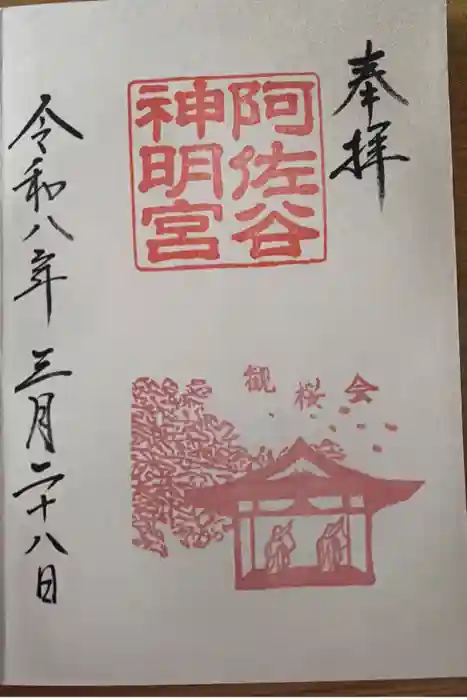 奉拝
阿佐谷
神明宮
観桜会
令和八年三月二十八日